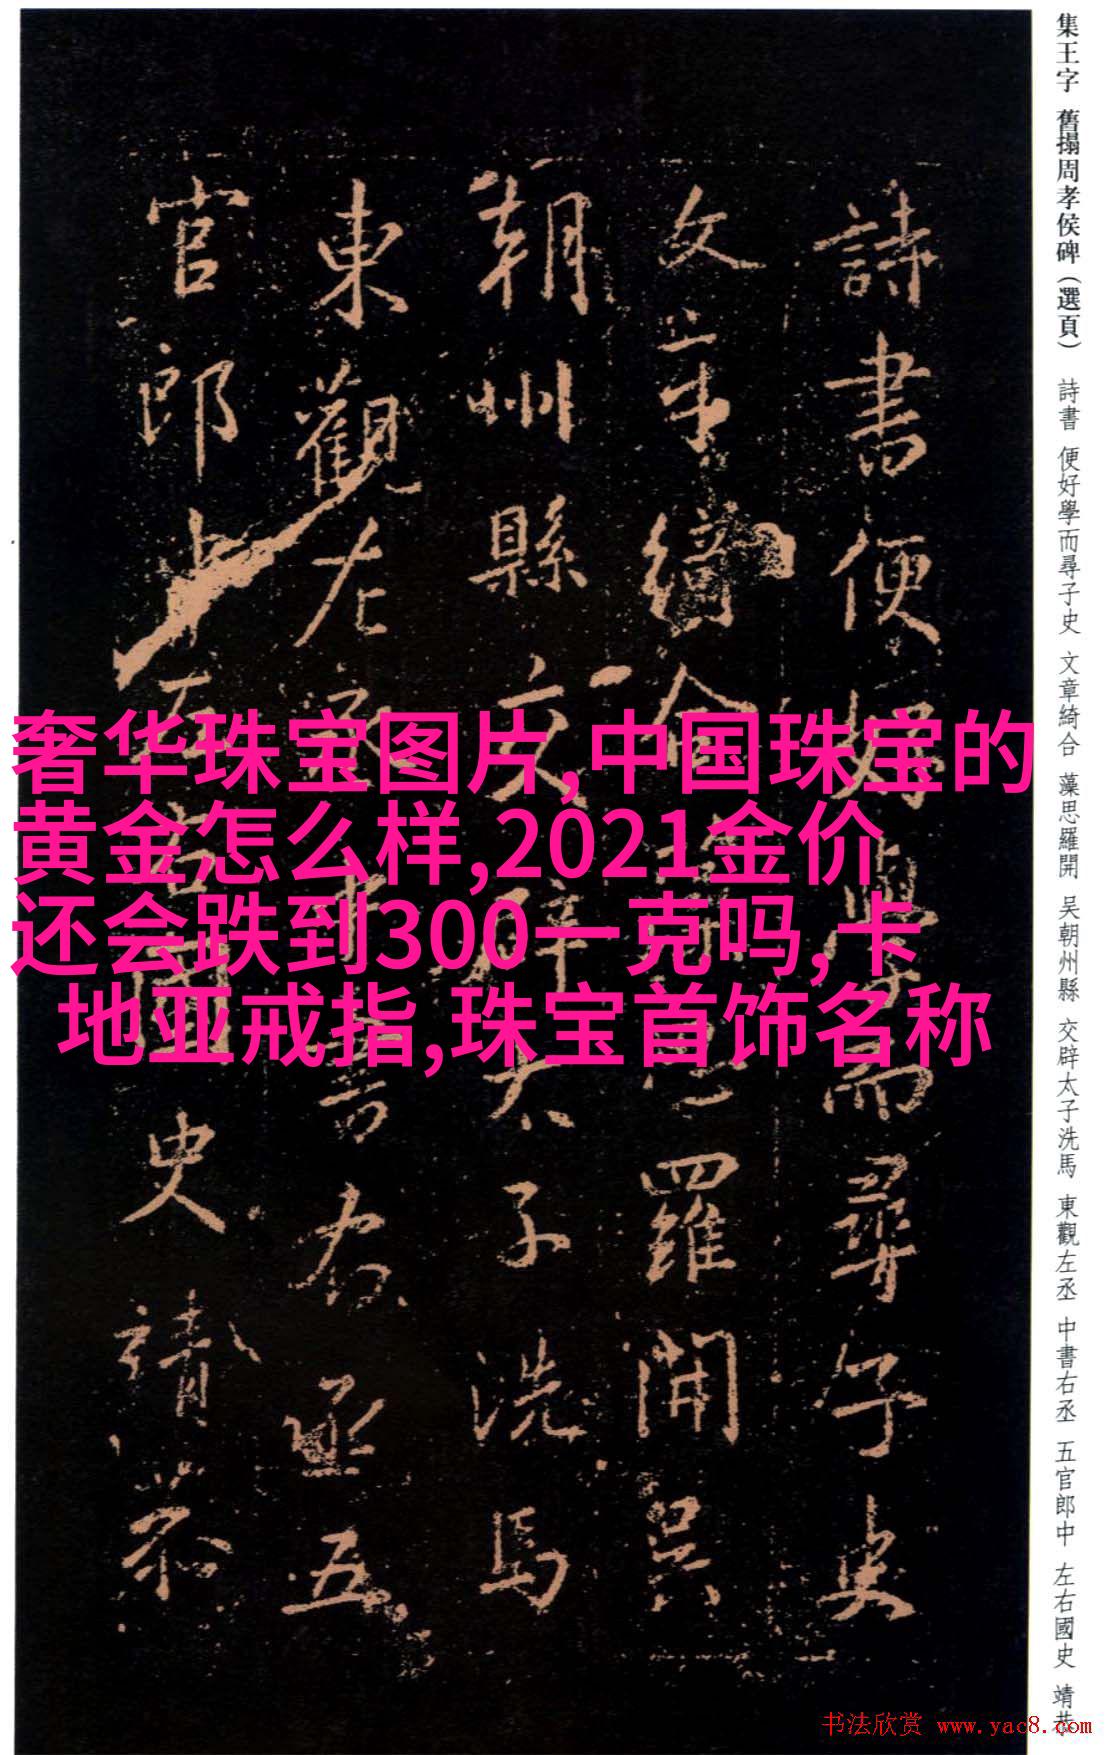 集王字 舊搨周孝侯碑（選頁） 詩書 便好學而尋子史 文章綺合 藻思羅開 吳朝州縣 交辟太子洗馬 東觀左丞 中書右丞 五官郎中 左右國史 靖恭
詩書便好學而尋子史
文章綺合藻思羅開吳
朝州縣交辟太子洗馬
東觀左丞中書右丞五
官郎中左右國史靖恭
奢华珠宝图片,中国珠宝的
黄金怎么样,2021金价
还会跌到300一克吗,卡
地亚戒指,珠宝首饰名称
书法欣赏 www.yac8.com